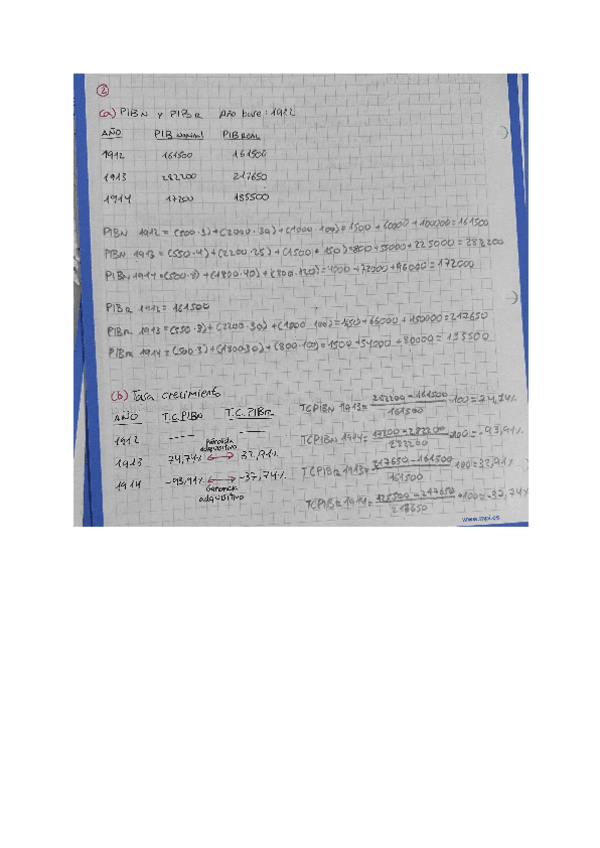 2
(a) PIBN y PIBR Año base: 1912
AÑO PIB nominal PIB REAL
1912 161500 161500
1913 282200 217650
1914 17200 135500
PIBN 1912 = (500·3)+(2000·30)+(1000·100)=1500+60000+100000=161500
PIBN 1913 = (550·4)+(2200·25)+(1500·150)= +55000+225000=282200
PIBN 1914=(500·8)+(1800·40)+(800·120)=4000+72000+96000=172000
PIBR 1912= 161500
PIBR 1913=(550·3)+(2200·30)+( 100)=1650+66000+150000=217650
PIBR 1914=(500·3)+(1800·30)+(800·100)=1500+54000+80000=135500
(b) Tasa crecimiento
AÑO T.C.PIBN T.C.PIBR
1912 ---- ---
1913 74,74% pérdida adquisitivo 32,91%
1914 -93,91% ganancia adquisitivo -37,74%
TCPIBN 1913= 282200-161500 / 161500 ·100=74,74%
TCPIBN 1914= 17200-282200 / 282200 ·100=-93,91%
TCPIBR 1913= 217650-161500 / 161500 ·100=32,91%
TCPIBR 1914= 135500-217650 / 217650 ·100=-37,74%